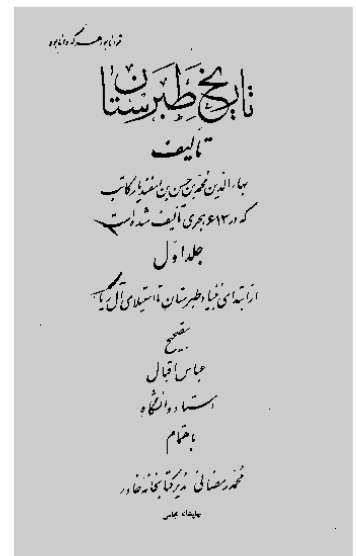 توانا بود هر که دانا بود
تاریخ طبرستان
تألیف
بهاءالدین محمد بن حسن بن اسفندیار کاتب
که در ۶۱۳ هجری تألیف شده است
جلد اول
از ابتدای بنیاد طبرستان تا استیلای آل زیار
بتصحیح
عباس اقبال
استاد دانشگاه
باهتمام
محمد رمضانی مدیر کتابخانه خاور
چاپخانه مجلس